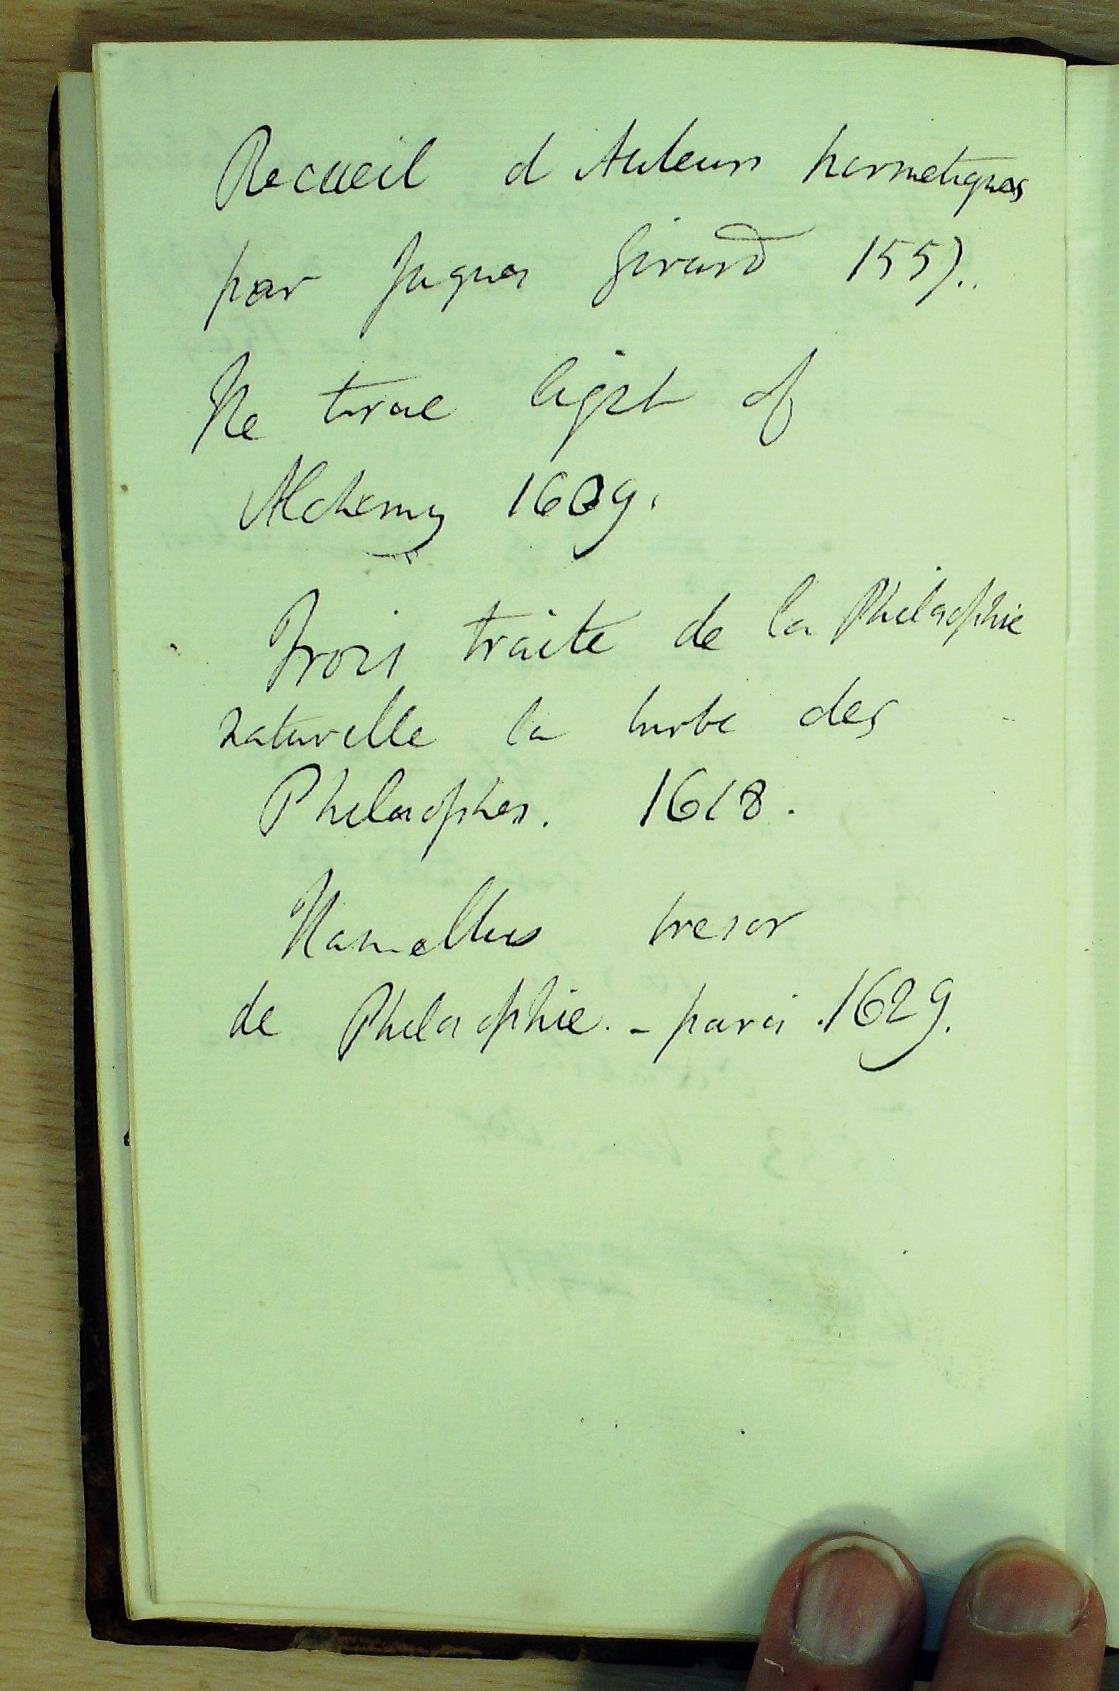 Recueil d Auteurs hermetiques
par Jaques Girard 1557..
The true light of
Alchemy 1609.
Trois traite de la Philosophie
naturelle la turbe des
Philosophes. 1618.
Hamellus tresor
de Philosophie. - paris. 1629.